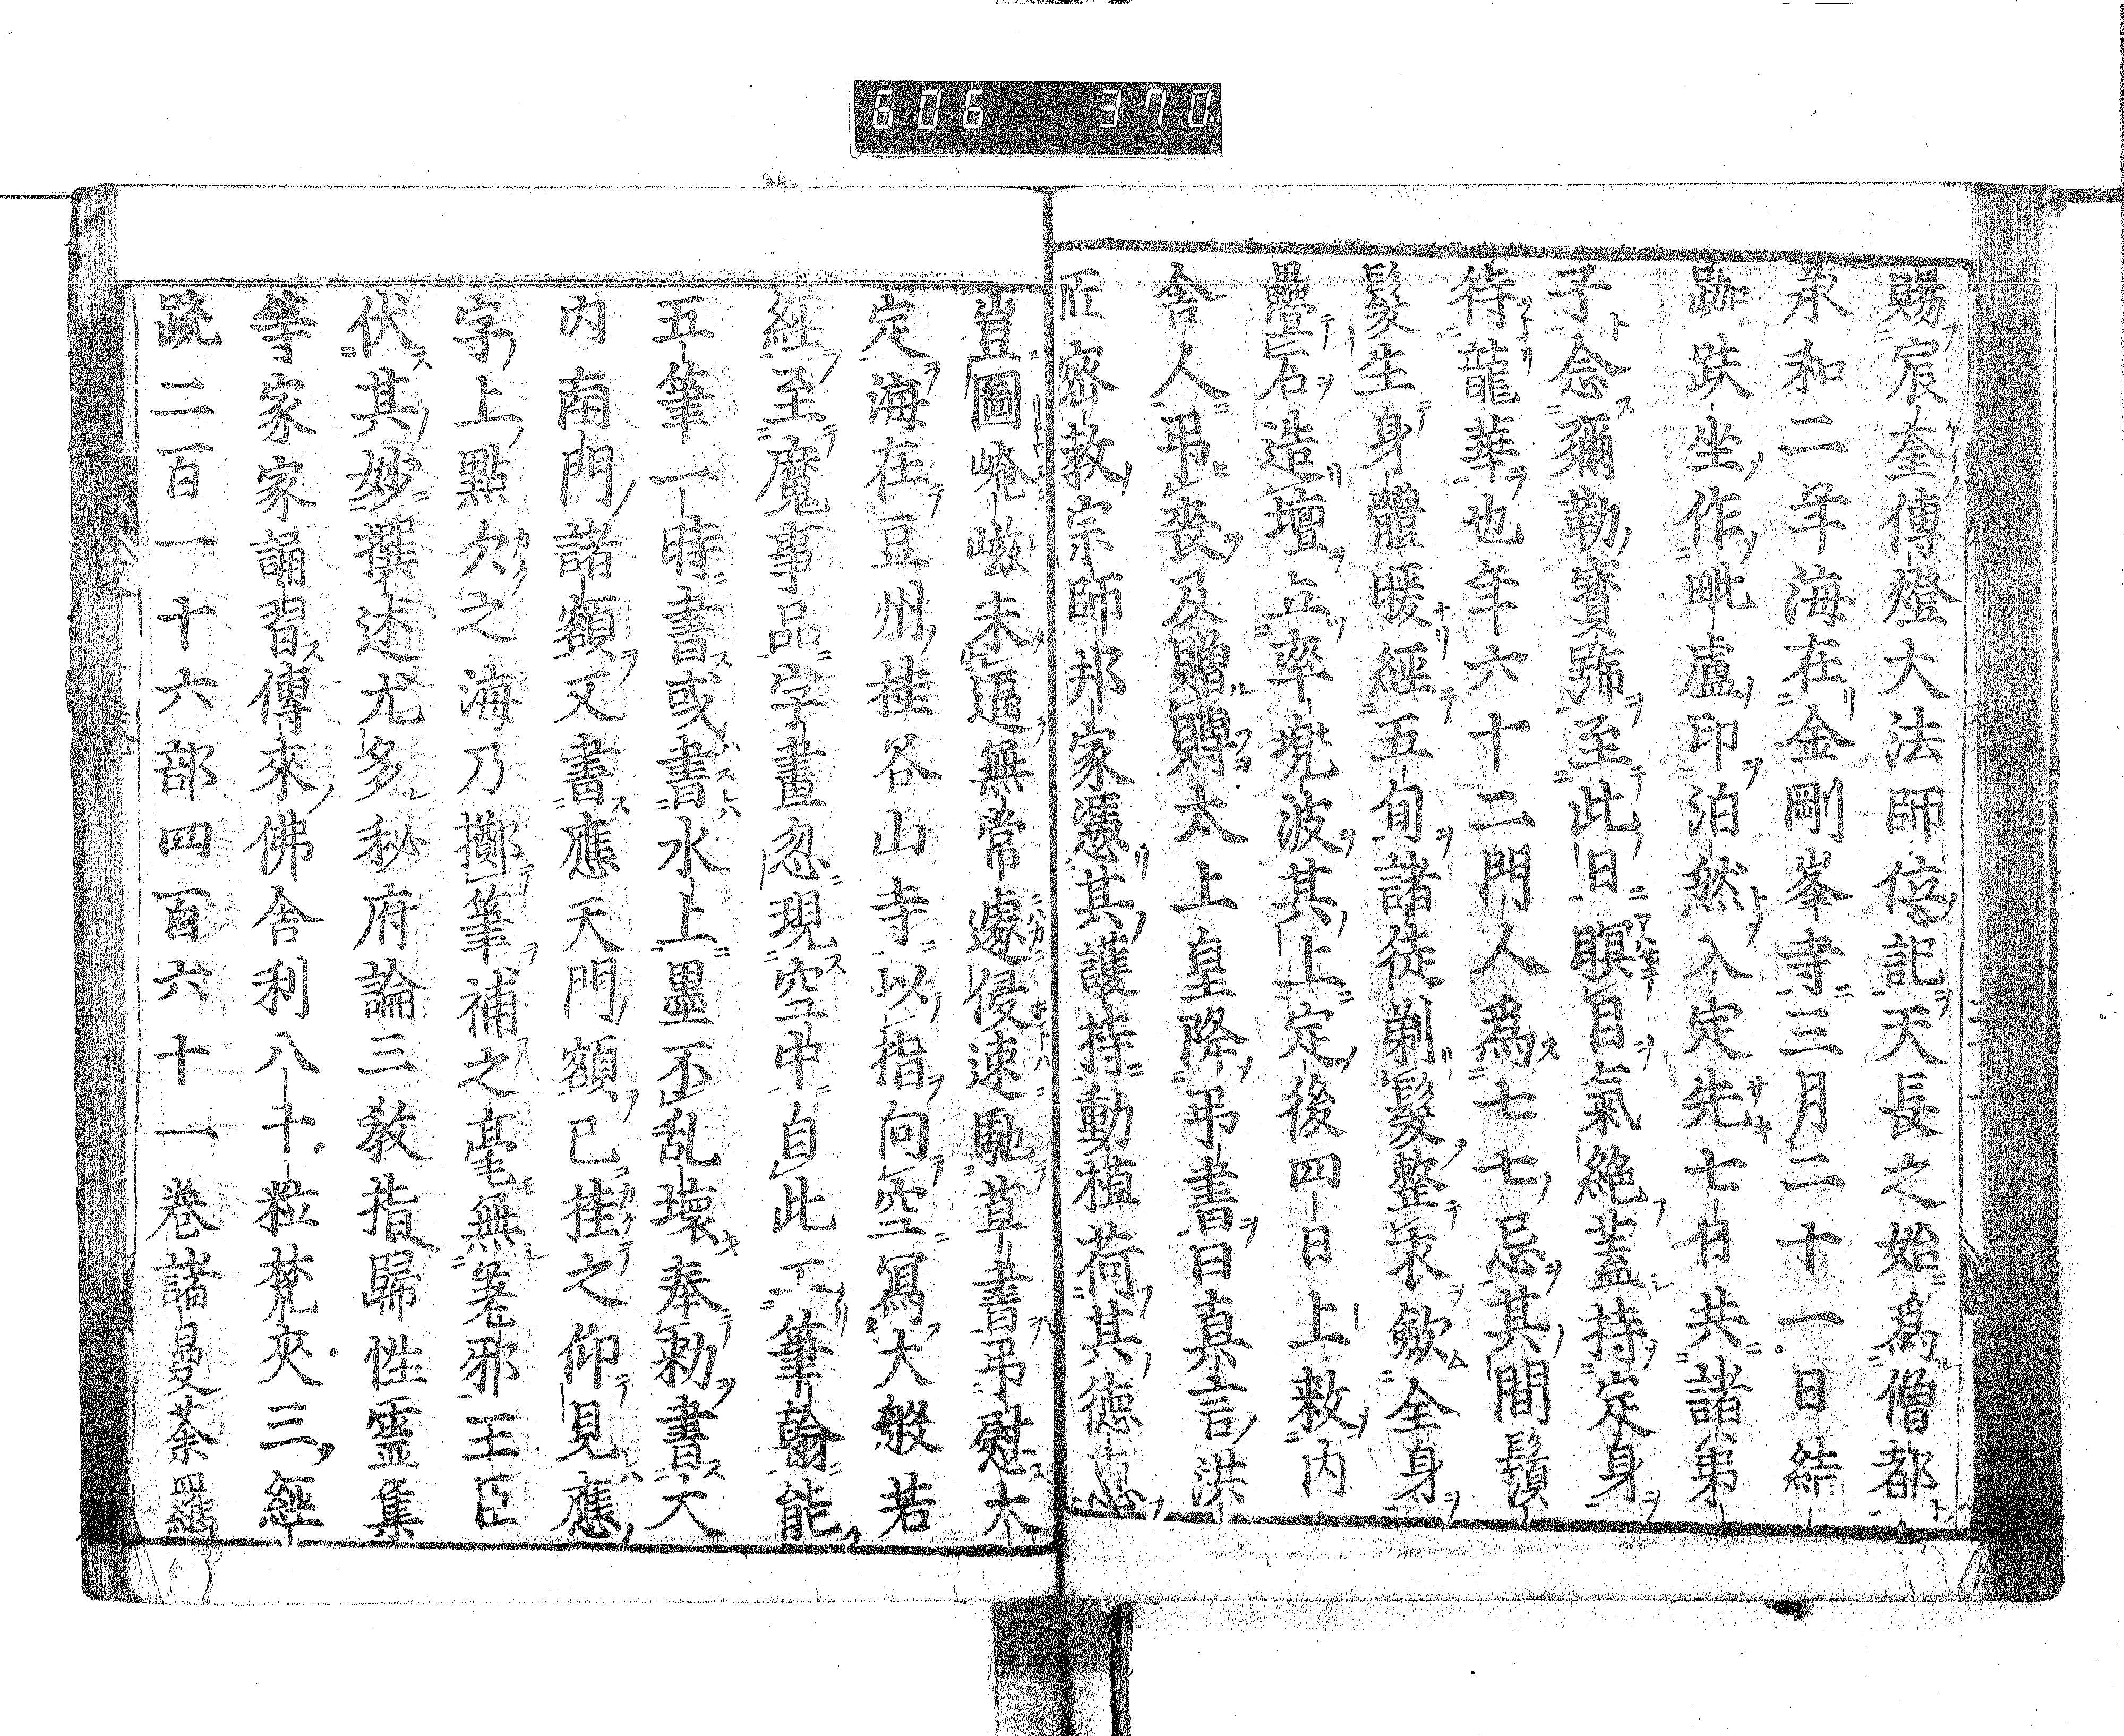 606 370
賜宸奎傳燈大法師位記天長之始爲僧都
承和二年海在金剛峯寺三月二十一日結
跏趺坐作毗盧印泊然入定先七日共諸弟
子念彌勒寳號至此日瞑目氣絶蓋持定身
待龍華也年六十二門人爲七七忌其間鬚
髮生身體暖經五旬諸徒剃髮整衣斂全身
疊石造壇立率兜波其上定後四日上敕内
舎人弔喪及贈賻太上皇降弔書曰真言洪
匠密教宗師邦家憑其護持動植荷其德
豈圖崦嵫未逼無常遽侵速馳草書弔慰太
定海在豆州桂谷山寺以指向空寫大般若
經至魔事品字畫忽現空中自此下筆翰能
五筆一時書或書水上墨不乱壞奉勅書大
内南門諸額又書應天門額已挂之仰見應
字上點欠之海乃擲筆補之毫無差邪王臣
伏其妙撰述尤多秘府論三敎指歸性靈集
等家家誦習傳來佛舎利八十粒梵夾三經
疏二百一十六部四百六十一卷諸曼荼羅